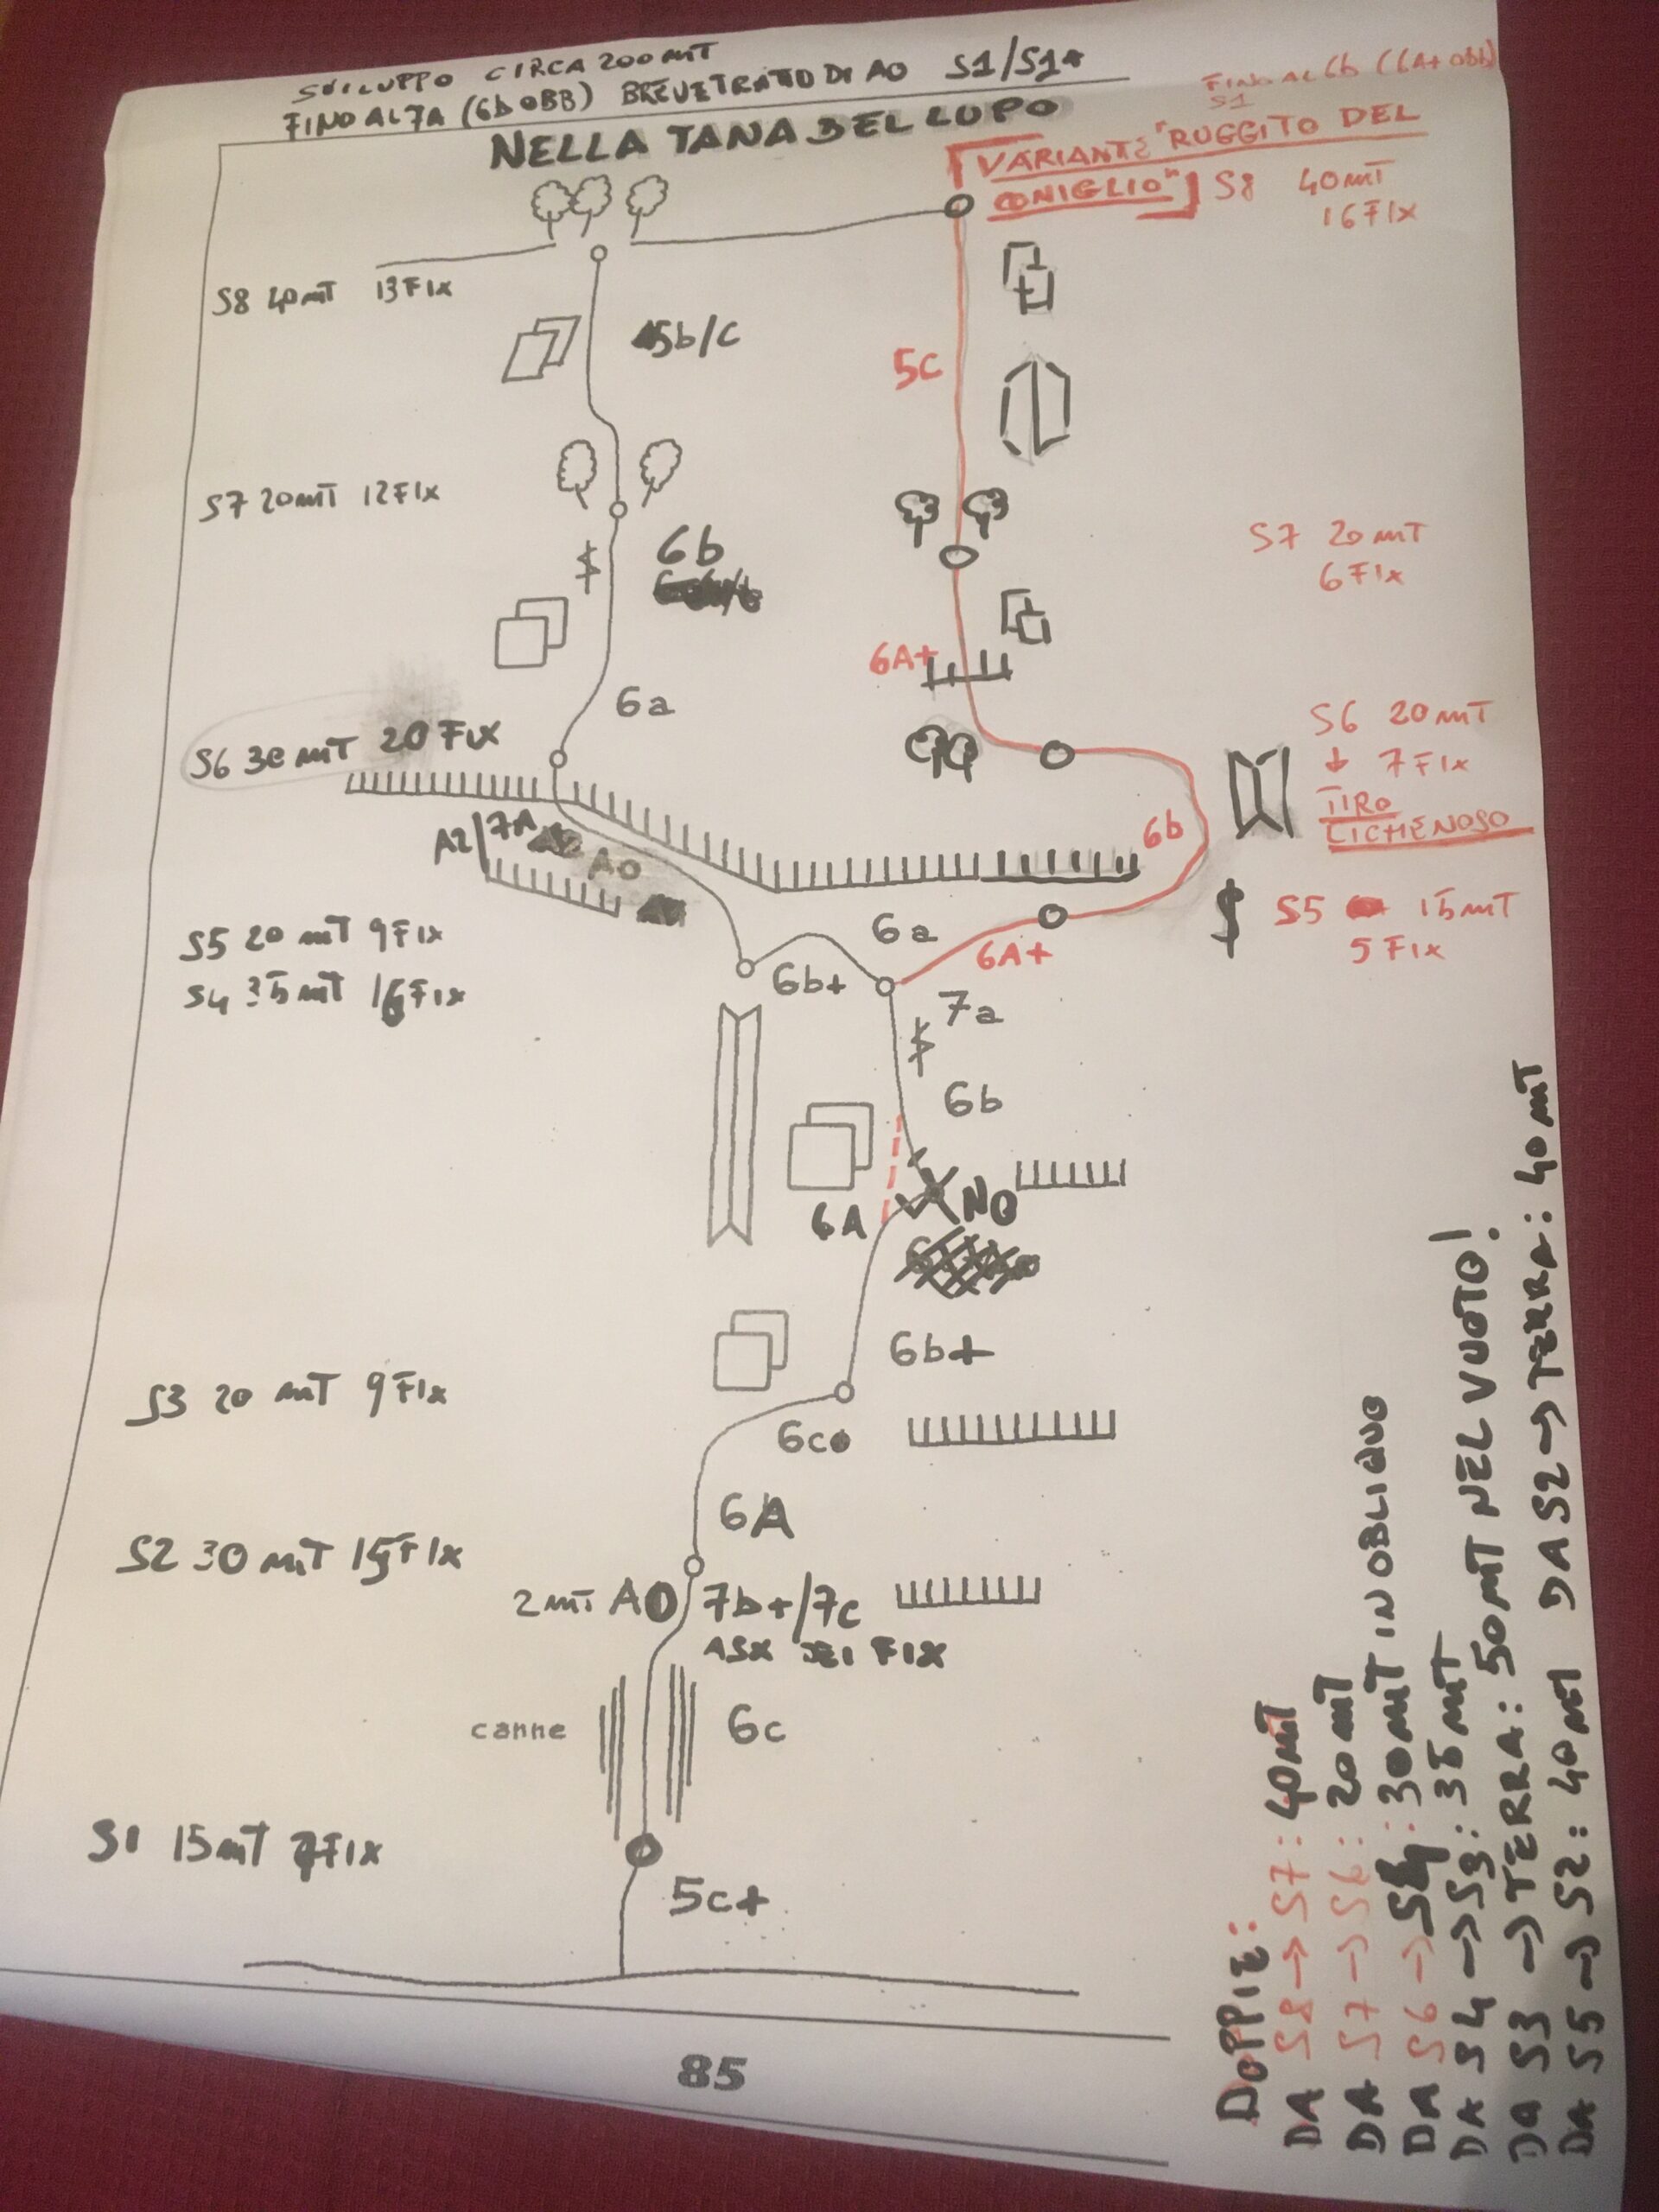 SVILUPPO CIRCA 200 MT
FINO AL 7A (6b OBB) BREVE TRATTO DI AO S1/S1+
NELLA TANA DEL LUPO
FINO AL 6b (6A+ obb)
S1
VARIANTE "RUGGITO DEL
CONIGLIO"
S8 40 MT
16 FIX
S8 40 MT 13 FIX
5b/c
5c
S7 20 MT 12 FIX
6b
S7 20 MT
6 FIX
6A+
6a
S6 30 MT 20 FIX
S6 20 MT
7 FIX
TIRO
LICHENOSO
6b
A2/7A
AO
S5 15 MT
5 FIX
6a
6A+
S5 20 MT 9 FIX
S4 35 MT 16 FIX
6b+
7a
6b
6A
NO
6b+
S3 20 MT 9 FIX
6c
6A
S2 30 MT 15 FIX
2 MT AO
7b+/7c
A SX DEI FIX
canne
6c
S1 15 MT 7 FIX
5c+
85
DOPPIE:
DA S8 → S7: 40 MT
DA S7 → S6: 20 MT
DA S6 → S4: 30 MT IN OBLIQUO
DA S4 → S3: 35 MT
DA S3 → TERRA: 50 MT NEL VUOTO!
DA S5 → S2: 40 MT DA S2 → TERRA: 40 MT